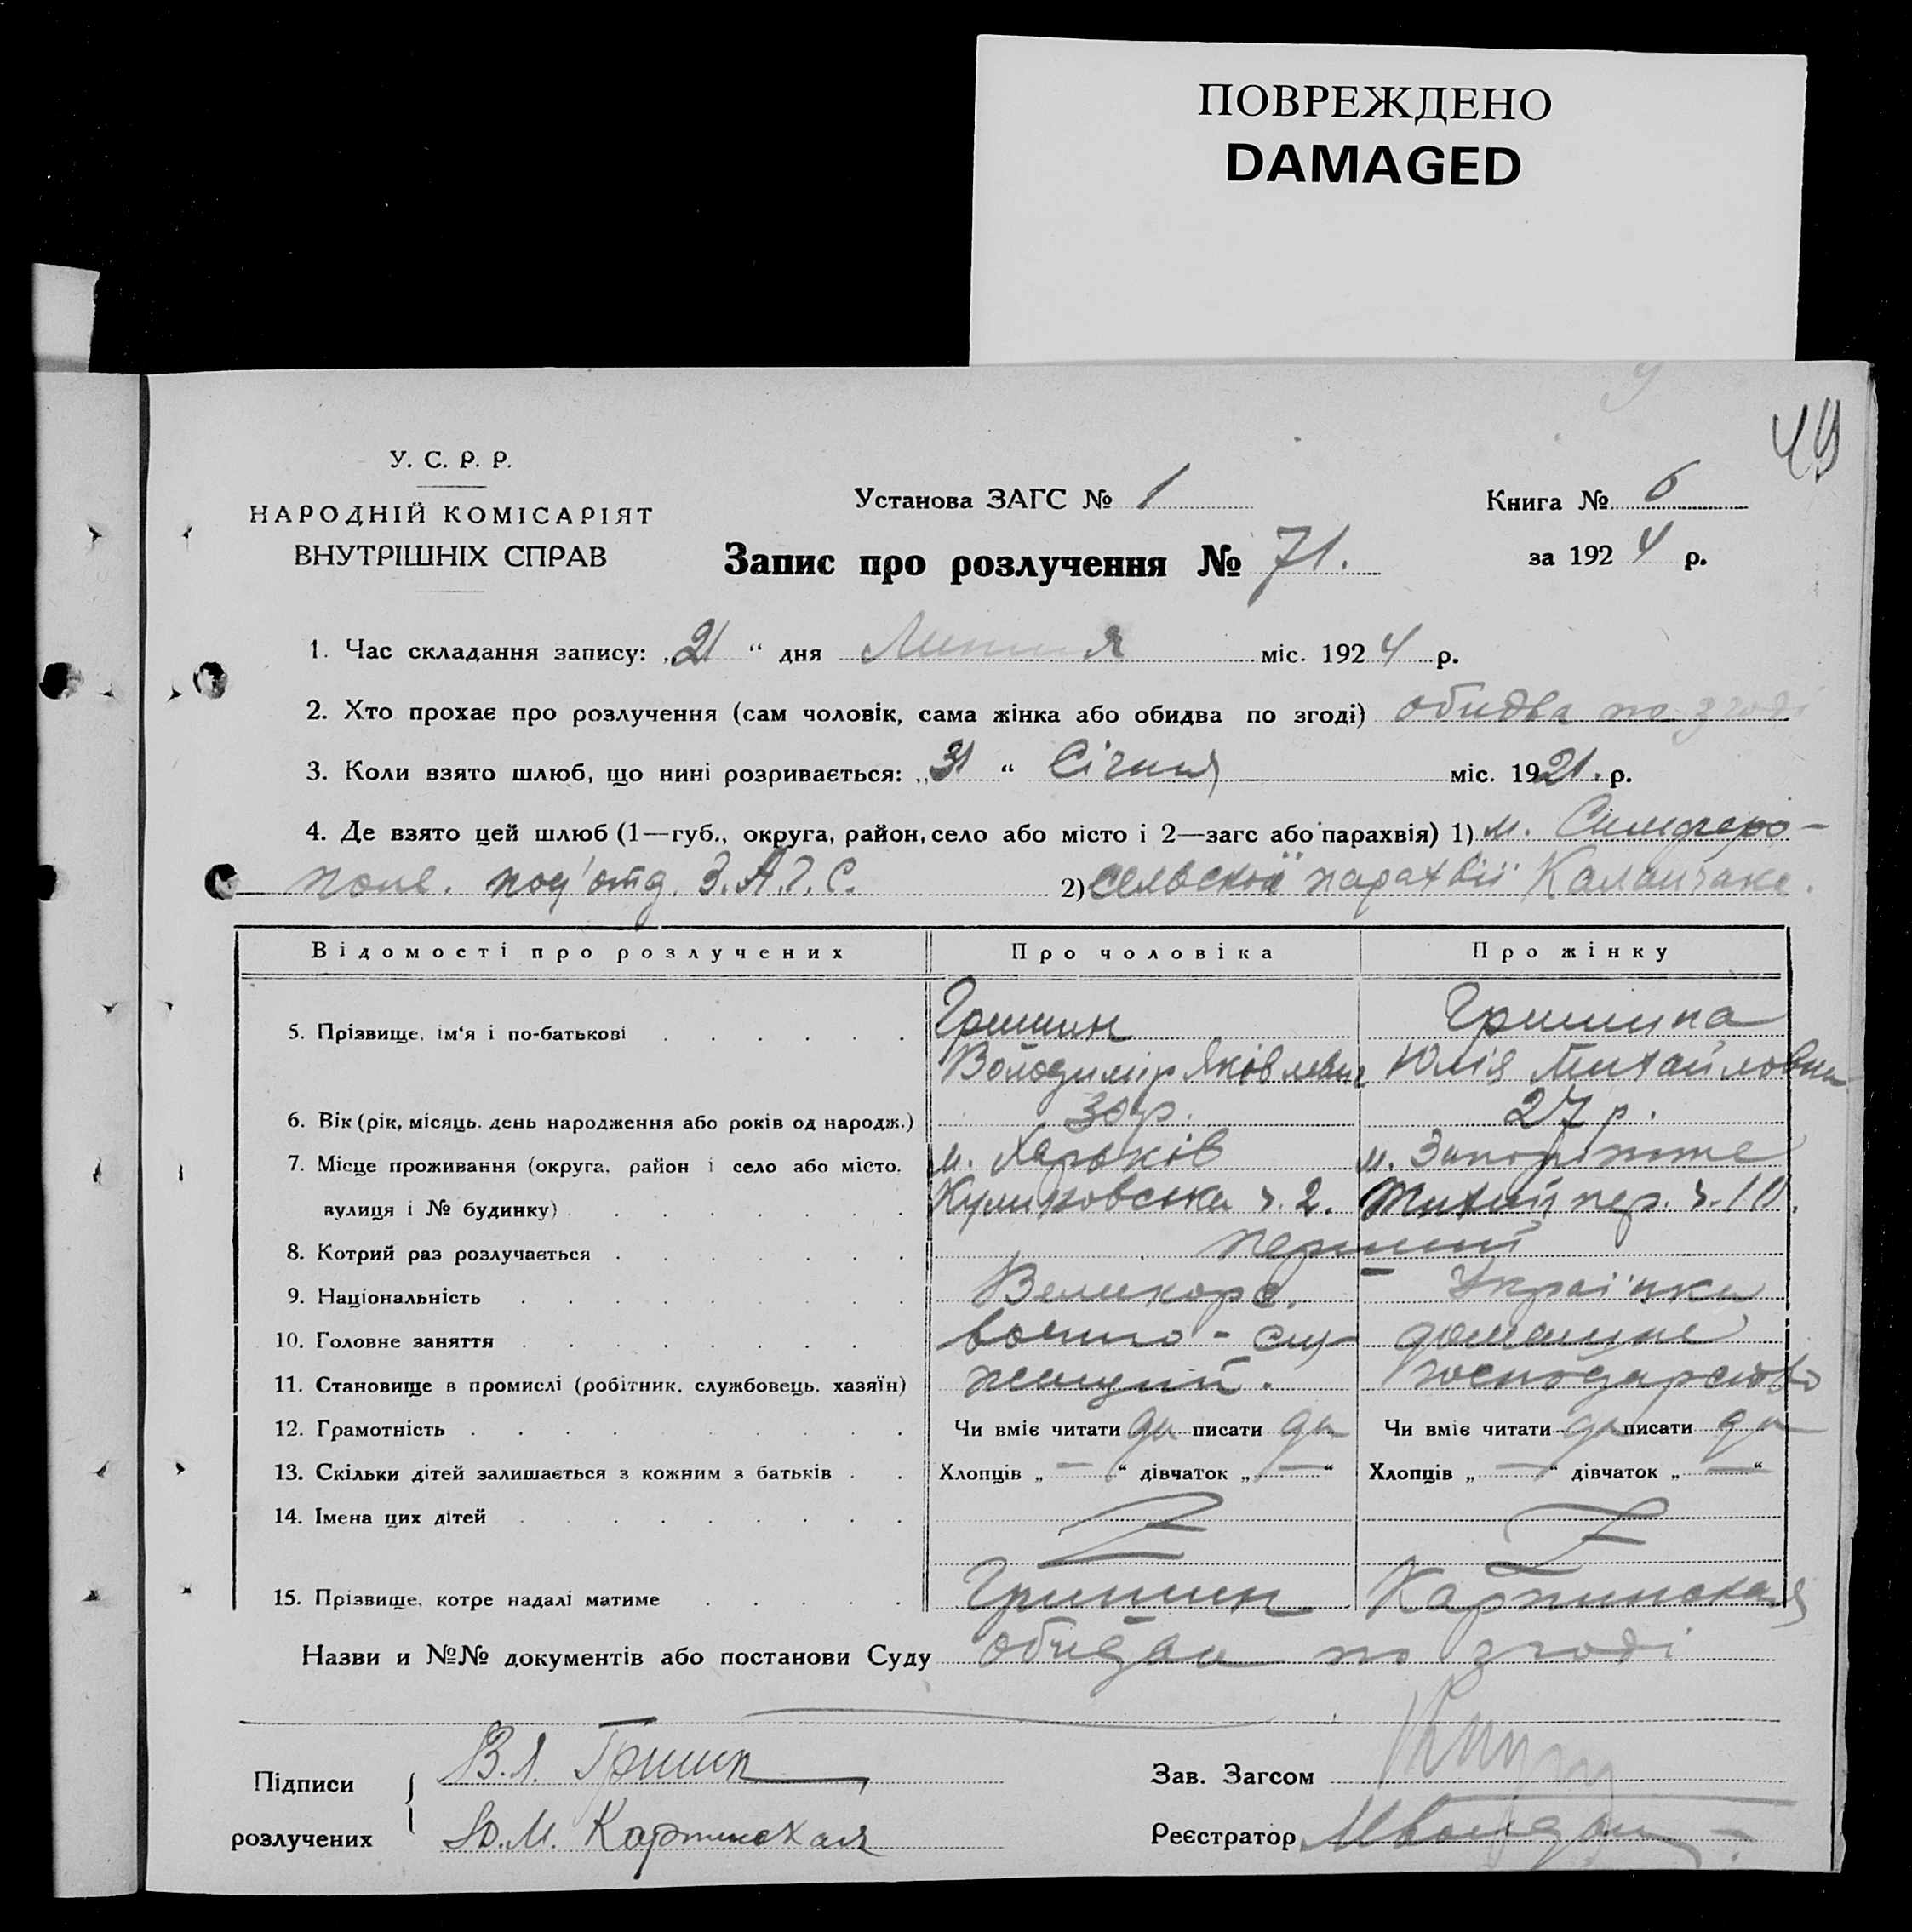 ПОВРЕЖДЕНО
DAMAGED
49
У. С. Р. Р.
НАРОДНІЙ КОМІСАРІЯТ
ВНУТРІШНІХ СПРАВ
Установа ЗАГС № 1
Книга № 6
Запис про розлучення № 71.
за 1924 р.
1. Час складання запису: „21 “ дня Липня міс. 1924 р.
2. Хто прохає про розлучення (сам чоловік, сама жінка або обидва по згоді) обидва по згоді
3. Коли взято шлюб, що нині розривається: „31 “ Січня міс. 1921. р.
4. Де взято цей шлюб (1—губ., округа, район, село або місто і 2—загс або парахвія) 1) м. Симферо-
поле. под'отд. З.А.Г.С. 2) сельской парахвії
Відомості про розлучених Про чоловіка Про жінку
5. Прізвище, ім'я і по-батькові Гришин Гришина
Володимір Яковлевич Юлія Михайловна
6. Вік (рік, місяць. день народження або років од народж.) 30 р. 27 р.
7. Місце проживання (округа, район і село або місто, м. Харьків м. Запоріжже
вулиця і № будинку) ч. 2. Тихий пер. ч. 10.
8. Котрий раз розлучається перший
9. Національність Великорс. Украї'нка
10. Головне заняття военно-слу- домашне
11. Становище в промислі (робітник, службовець, хазяїн) жащий. господарство
12. Грамотність Чи вміє читати да писати да Чи вміє читати да писати да
13. Скільки дітей залишається з кожним з батьків Хлопців „ — “ дівчаток „ — “ Хлопців „ — “ дівчаток „ — “
14. Імена цих дітей
15. Прізвище, котре надалі матиме Гришин Карпинская
Назви и №№ документів або постанови Суду обидва по згоді
Підписи В.Я. Гришин
Зав. Загсом
розлучених Ю.М. Карпинская
Реєстратор